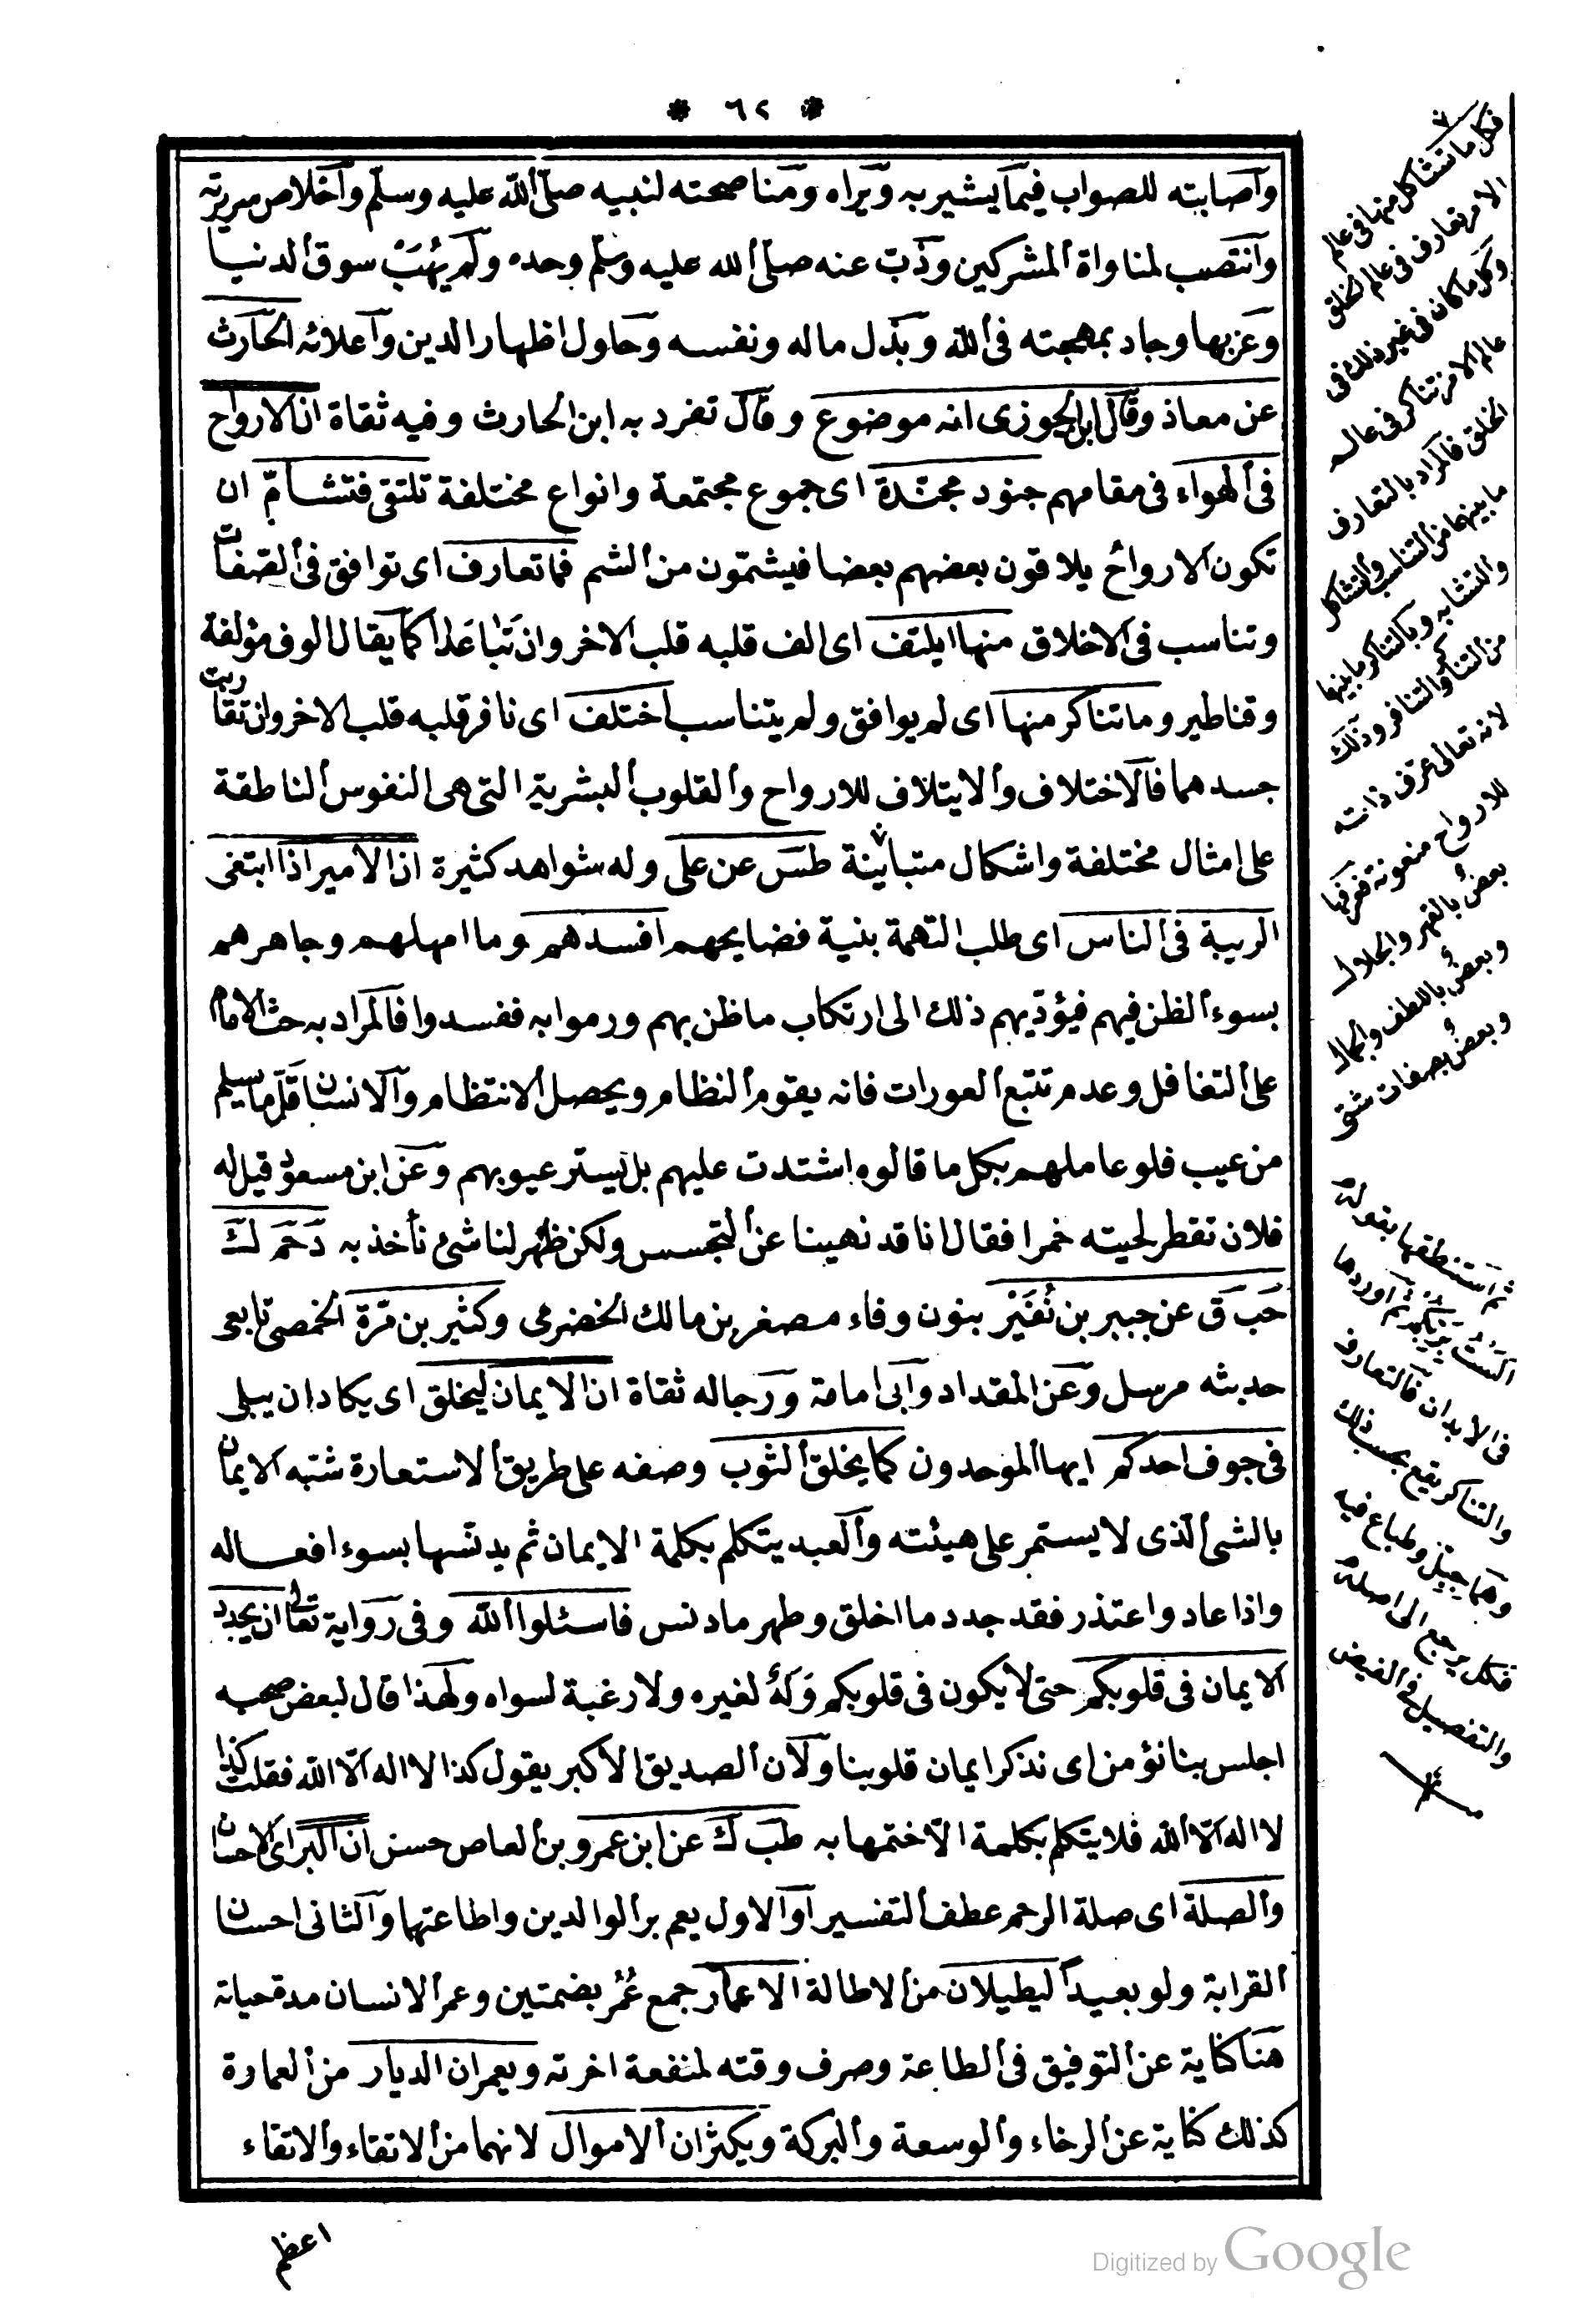 * ٦٢ *
واصابته للصواب فيما يشير به ويراه ومناصحته لنبيه صلى الله عليه وسلم واخلاص سريرته
وانتصب لمناواة المشركين وذب عنه صلى الله عليه وسلم وحده ولم يهب سوق الدنيا
وعز بها وجاد بمهجته فى الله وبذل ماله ونفسه وحاول اظهار الدين واعلائه الحارث
عن معاذ وقال ابن الجوزى انه موضوع وقال تفرد به ابن الحارث وفيه ثقاة ان الارواح
فى الهواء فى مقامهم جنود مجندة اى جموع مجتمعة وانواع مختلفة تلتقى فتشامّ ان
تكون الارواح يلاقون بعضهم بعضا فيشتمّون من الشم فما تعارف اى توافق فى الصفات
وتناسب فى الاخلاق منها ايلتف اى الف قلبه قلب الاخر وان تباعدا كما يقال الوف مؤلفة
وقناطير وما تناكر منها اى لم يوافق ولم يتناسب اختلف اى نافر قلبه قلب الاخر وان تقاربت
جسدهما فالاختلاف والايتلاف للارواح والقلوب البشرية التى هى النفوس الناطقة
على امثال مختلفة واشكال متباينة طس عن على وله شواهد كثيرة ان الامير اذا ابتغى
الريبة فى الناس اى طلب التهمة بنية فضايحهم افسدهم وما امهلهم وجاهرهم
بسوء الظن فيهم فيؤديهم ذلك الى ارتكاب ما ظن بهم ورموا به ففسدوا فالمراد به حث الامام
على التغافل وعدم تتبع العورات فانه يقوم النظام ويحصل الانتظام والانسان قلّ ما يسلم
من عيب فلو عاملهم بكل ما قالوه اشتدت عليهم بل يستر عيوبهم وعن ابن مسعود قيل له
فلان تقطر لحيته خمرا فقال انا قد نهينا عن التجسس ولكن ظهر لنا شئ نأخذ به دحم ك
حب ق عن جبير بن نُفَيْر بنون وفاء مصغر بن مالك الخضرمى وكثير بن مرّة الحمصى تابعى
حديثه مرسل وعن المقداد وابى امامة ورجاله ثقاة ان الايمان ليخلق اى يكاد ان يبلى
فى جوف احدكم ايها الموحدون كما يخلق الثوب وصفه على طريق الاستعارة شبه الايمان
بالشئ الذى لا يستمر على هيئته والعبد يتكلم بكلمة الايمان ثم يدنسها بسوء افعاله
واذا عاد واعتذر فقد جدد ما اخلق وطهر ما دنس فاسئلوا الله وفى رواية تعالى ان يجدد
الايمان فى قلوبكم حتى لا يكون فى قلوبكم وَلَهٌ لغيره ولا رغبة لسواه ولهذا قال لبعض صحبه
اجلس بنا نؤمن اى نذكر ايمان قلوبنا ولان الصديق الاكبر يقول كذا لا اله الا الله فقلت كذا
لا اله الا الله فلا يتكلم بكلمة الا ختمها به طب ك عن ابن عمرو بن العاص حسن ان البر اى الاحسان
والصلة اى صلة الرحم عطف التفسير او الاول يعم بر الوالدين واطاعتهما والثانى احسان
القرابة ولو بعيدا ليطيلان من الاطالة الاعمار جمع عُمُر بضمتين وعمر الانسان مدة حياته
هنا كناية عن التوفيق فى الطاعة وصرف وقته لمنفعة اخرته ويعمران الديار من العمارة
كذلك كناية عن الرخاء والوسعة والبركة ويكثران الاموال لانهما من الاتقاء والاتقاء
اعظم
فكل ما تشاكل منها فى عالم
الامر تعارف فى عالم الخلق
وكل ما كان فى غير ذلك فى
عالم الامر تناكر فى عالم
الخلق فالمراد بالتعارف
ما بينها من التناسب والتشاكل
والتشابه وبالتناكر ما بينها
من التنا والتنافر وذلك
لانه تعالى عرّف ذاته
للارواح منعوتة فعرفها
بعضٌ بالقهر والجلال
وبعضٌ باللطف والجمال
وبعضٌ بصفات شتى
ثم استنطقها بقوله
الست بربكم ثم اوردها
فى الابدان فالتعارف
والتناكر يقع بحسب ذلك
فكل يرجع الى اصله
والتفصيل فى الفيض
Digitized by Google